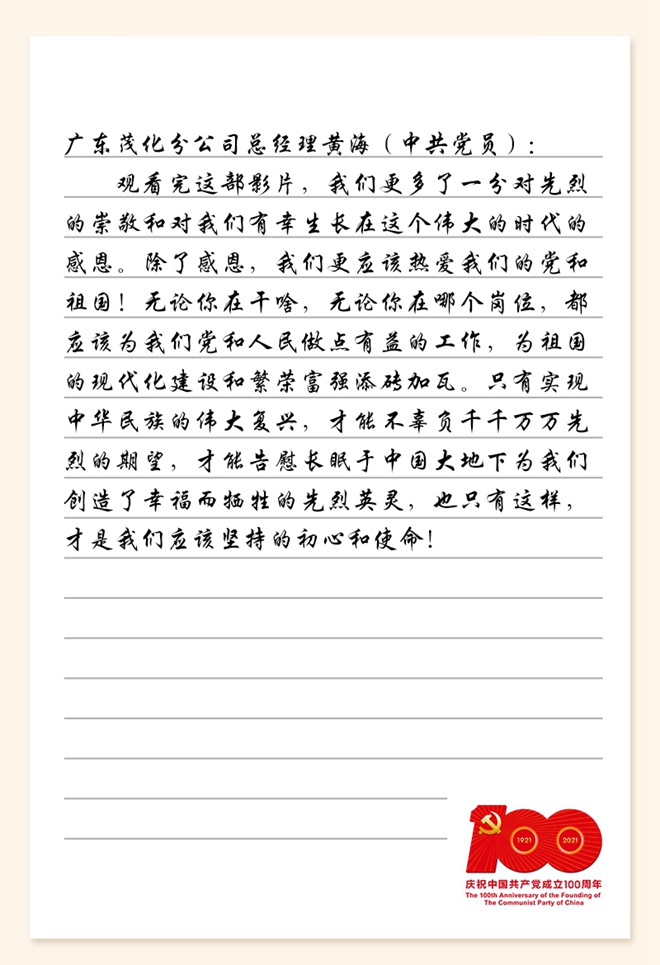 广东茂化分公司总经理黄海（中共党员）：
观看完这部影片，我们更多了一分对先烈
的崇敬和对我们有幸生长在这个伟大的时代的
感恩。除了感恩，我们更应该热爱我们的党和
祖国！无论你在干啥，无论你在哪个岗位，都
应该为我们党和人民做点有益的工作，为祖国
的现代化建设和繁荣富强添砖加瓦。只有实现
中华民族的伟大复兴，才能不辜负千千万万先
烈的期望，才能告慰长眠于中国大地下为我们
创造了幸福而牺牲的先烈英灵，也只有这样，
才是我们应该坚持的初心和使命！
100
1921
2021
庆祝中国共产党成立100周年
The 100th Anniversary of the Founding of
The Communist Party of China